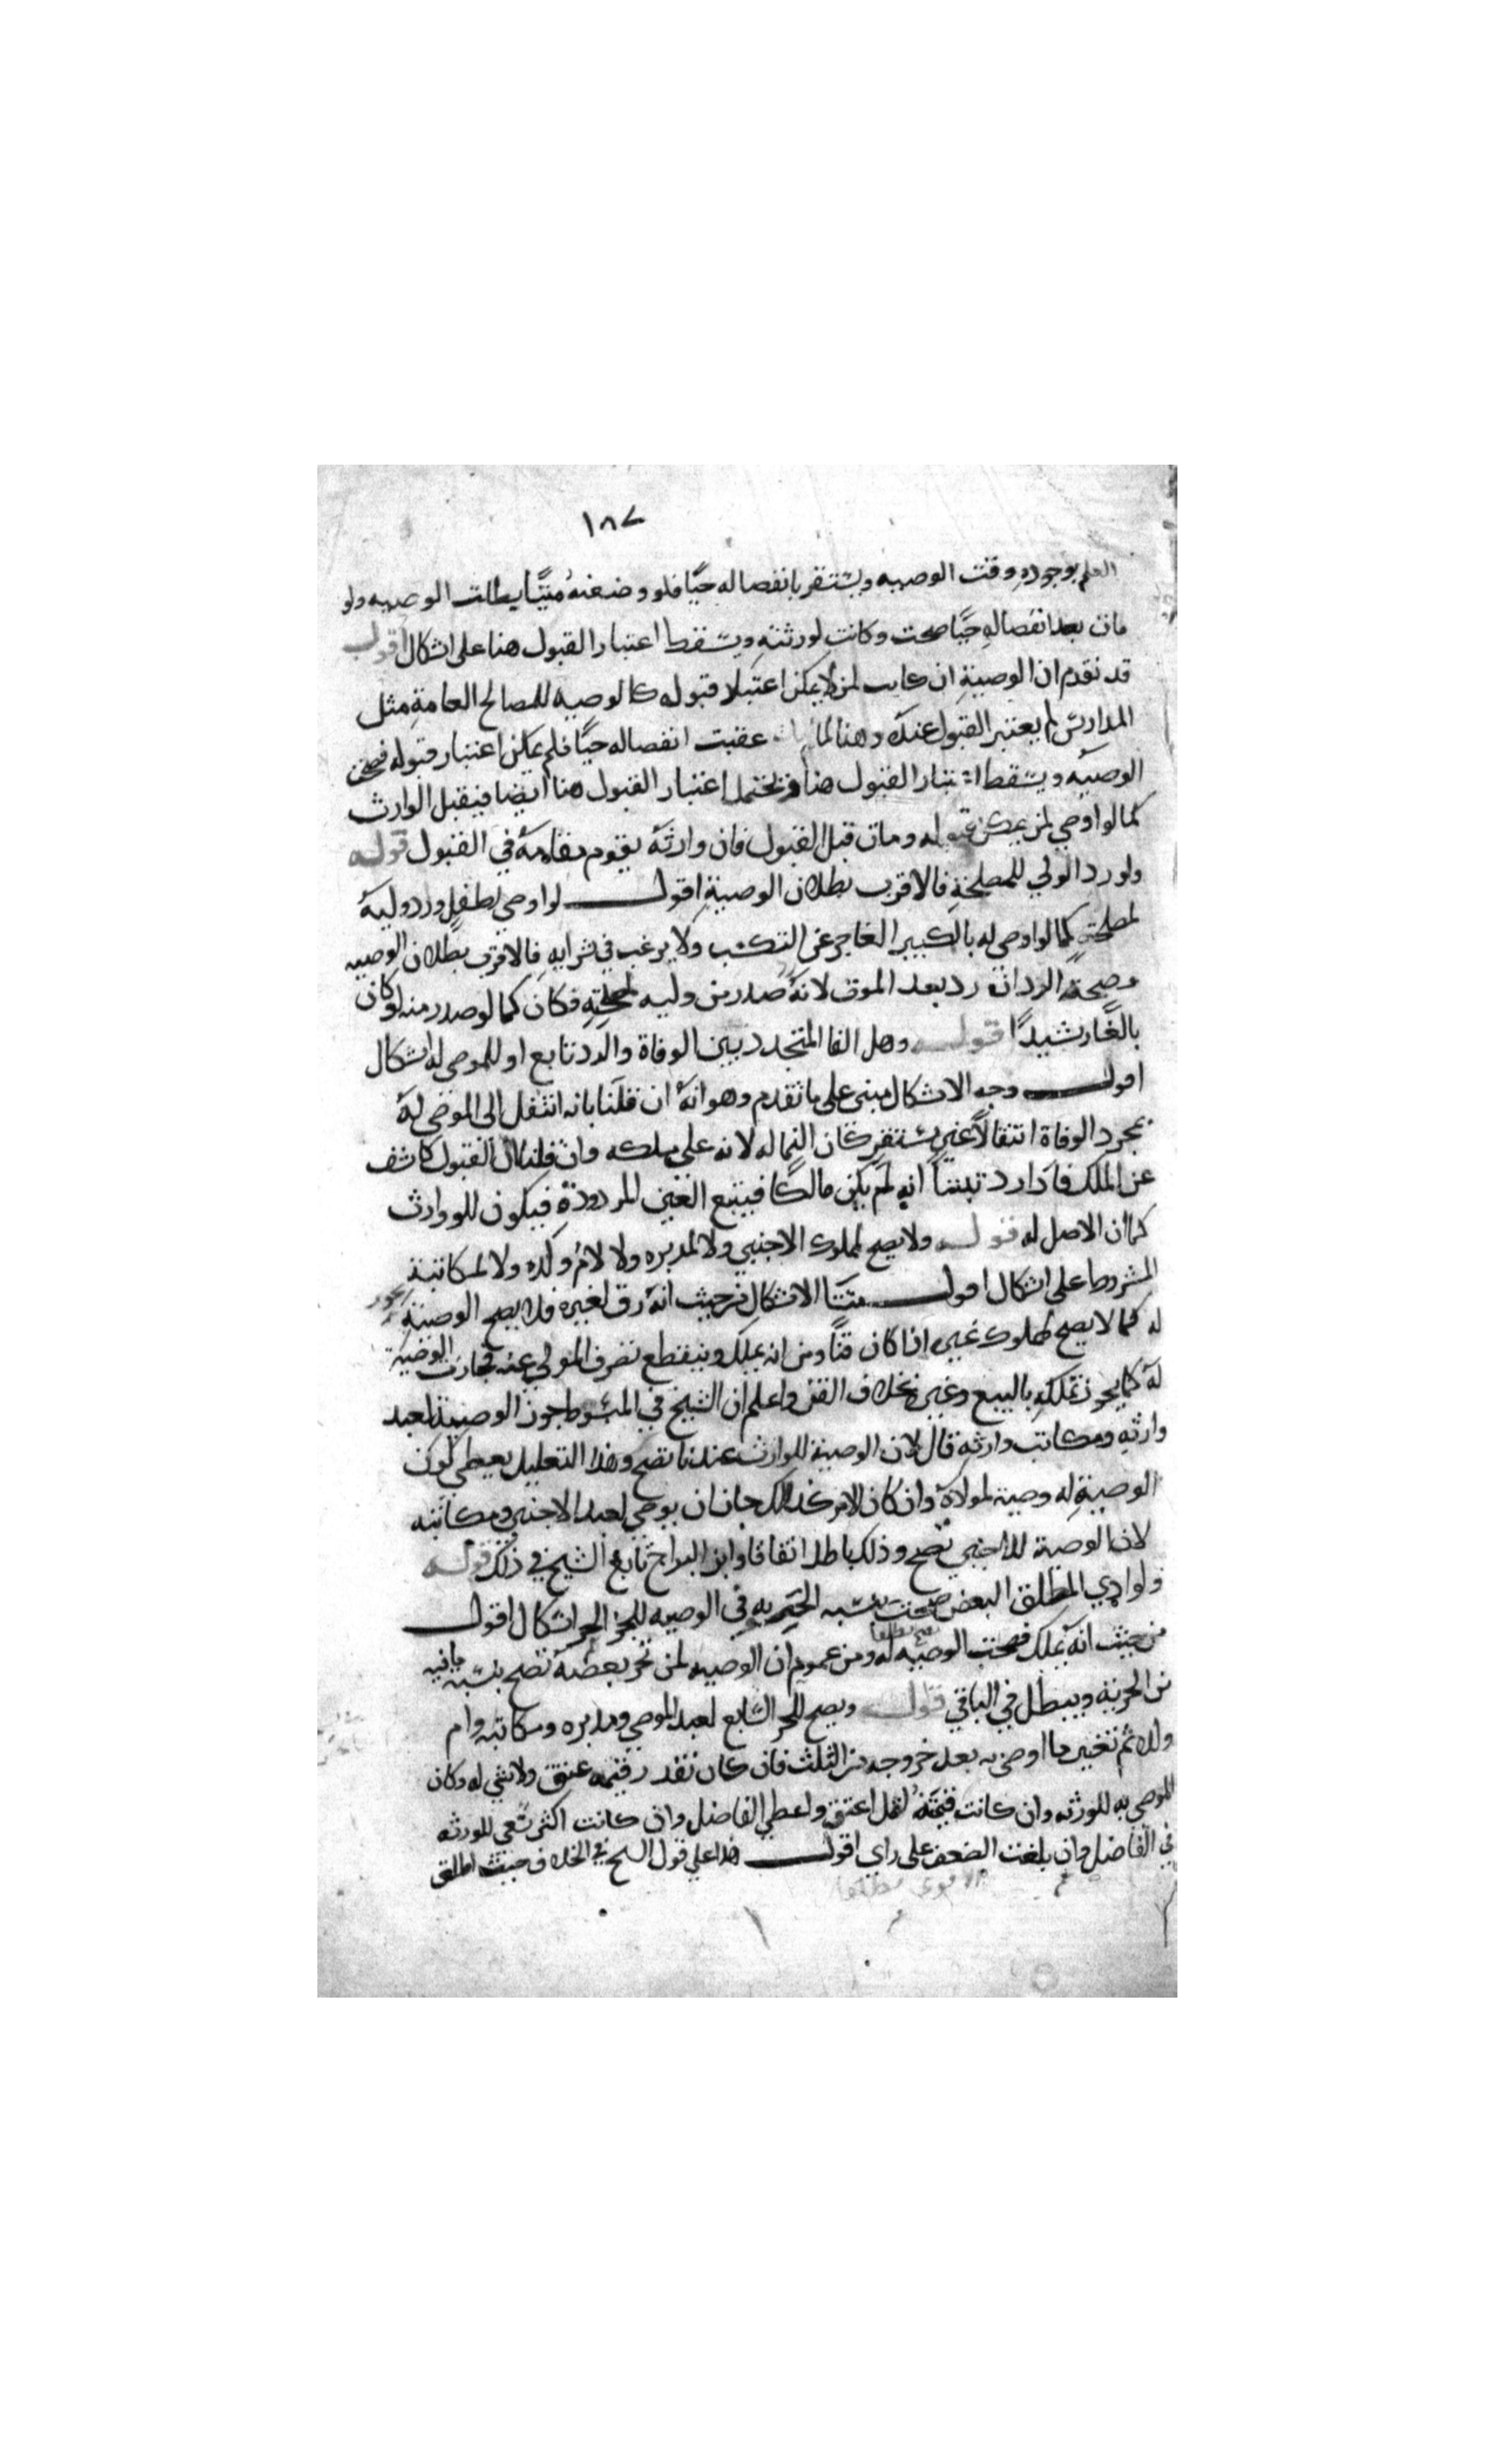 ١٨٧
العلم بوجوده وقت الوصيه ويستقر بانفصاله حيًّا فلو وضعته ميتًا بطلت الوصيه ولو
مات بعد انفصاله حيًّا صحت وكانت لورثته ويسقط اعتبار القبول هنا على اشكال اقول
قد تقدم ان الوصية ان كانت لمن لا يمكن اعتبار قبوله كالوصيه للمصالح العامة مثل
المدارس لم يعتبر القبول عندك وهنا لما مات عقيب انفصاله حيًّا فلم يمكن اعتبار قبوله فصحت
الوصيه ويسقط اعتبار القبول هنا ويحتمل اعتبار القبول هنا ايضا فيقبل الوارث
كما لو اوصي لمن يمكن قبوله ومات قبل القبول فان وارثه يقوم مقامه في القبول قوله
ولو رد الولي للمصلحة فالاقرب بطلان الوصية اقول لو اوصي لطفل ورد وليه
لمصلحته كما لو اوصى له بالكبير العاجز عن التكسب ولا يرغب في شرايه فالاقرب بطلان الوصيه
وصحة الرد ان رد بعد الموت لانه صدر من وليه لمصلحته فكان كما لو صدر منه لو كان
بالغًا رشيدًا قوله وهل النما المتجدد بين الوفاة والرد تابع او للموصى له اشكال
اقول وجه الاشكال مبني على ما تقدم وهو انه ان قلنا بانه انتقل الى الموصى له
بمجرد الوفاة انتقالًا غير مستقر كان النما له لانه على ملكه وان قلنا ان القبول كاشف
عن الملك فاذا رد تبيننا انه لم يكن مالكًا فيتبع العين المردودة فيكون للوارث
كما ان الاصل له قوله ولا يصح لمملوك الاجنبي ولا لمدبره ولا لام ولده ولا لمكاتبه
المشروط على اشكال اقول منشا الاشكال من حيث انه رق لغيره فلا يصح الوصية
له كما لا يصح لمملوك غيره اذا كان قنًّا ومن انه يملك وينقطع تصرف المولي عنه فجازت الوصية
له كما يجوز تملكه بالبيع وغيره بخلاف القن واعلم ان الشيخ في المبسوط جوز الوصية لعبد
وارثه ومكاتب وارثه قال لان الوصية للوارث عندنا تصح وهذا التعليل يعطي كون
الوصية له وصية لمولاه وان كان الامر كذلك جاز ان يوصي لعبد الاجنبي ومكاتبه
لان الوصية للاجنبي تصح وذلك باطل اتفاقا وابن البراج تابع الشيخ في ذلك قوله
ولو ادي المطلق البعض صحت بنسبه الحريه وفي الوصيه للجز الحر اشكال اقول
من حيث انه يملك فصحت الوصيه له ومن عموم ان الوصيه لمن تحرر بعضه تصح بنسبه ما فيه
من الحرية ويبطل في الباقي قوله ويصح للحر الشايع لعبد الموصي ومدبره ومكاتبه وام
ولده ثم تعتبر ما اوصى به بعد خروجه من الثلث فان كان بقدر قيمته عتق ولا شي له وكان
الموصى به للورثه وان كانت قيمته اقل اعتق واعطي الفاضل وان كانت اكثر سعى للورثه
في الفاضل وان بلغت الضعف على راي اقول هذا على قول الشيخ في الخلاف حيث اطلق